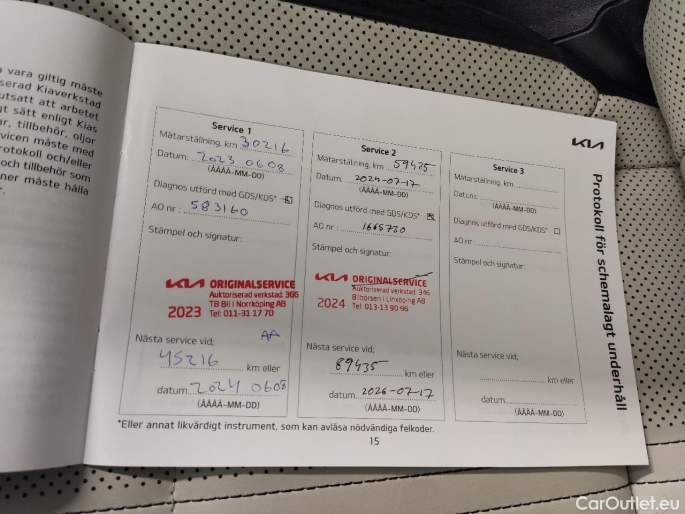 a vara giltig måste
serad Kiaverkstad
utsatt att arbetet
gt sätt enligt Kias
ar, tillbehör, oljor
rvicen måste med
rotokoll och/eller
och tillbehör som
ner måste hålla
KIA
Protokoll för schemalagt underhåll
Service 1
Mätarställning, km 30216
Datum: 2023 06 08
(ÅÅÅÅ-MM-DD)
Diagnos utförd med GDS/KDS*
AO nr : 583160
Stämpel och signatur:
KIA ORIGINALSERVICE
Auktoriserad verkstad: 366
TB Bil i Norrköping AB
2023 Tel: 011-31 17 70
AA
Nästa service vid:
45216 km eller
datum 2024 06 08
(ÅÅÅÅ-MM-DD)
Service 2
Mätarställning, km 59435
Datum: 2024-07-17
(ÅÅÅÅ-MM-DD)
Diagnos utförd med GDS/KDS*
AO nr : 1665730
Stämpel och signatur:
KIA ORIGINALSERVICE
Auktoriserad verkstad: 346
Bilbörsen i Linköping AB
2024 Tel: 013-13 90 95
Nästa service vid:
89435 km eller
datum 2026-07-17
(ÅÅÅÅ-MM-DD)
Service 3
Mätarställning, km
Datum:
(ÅÅÅÅ-MM-DD)
Diagnos utförd med GDS/KDS*
AO nr
Stämpel och signatur:
Nästa service vid:
km eller
datum
(ÅÅÅÅ-MM-DD)
*Eller annat likvärdigt instrument, som kan avläsa nödvändiga felkoder.
15
CarOutlet.eu